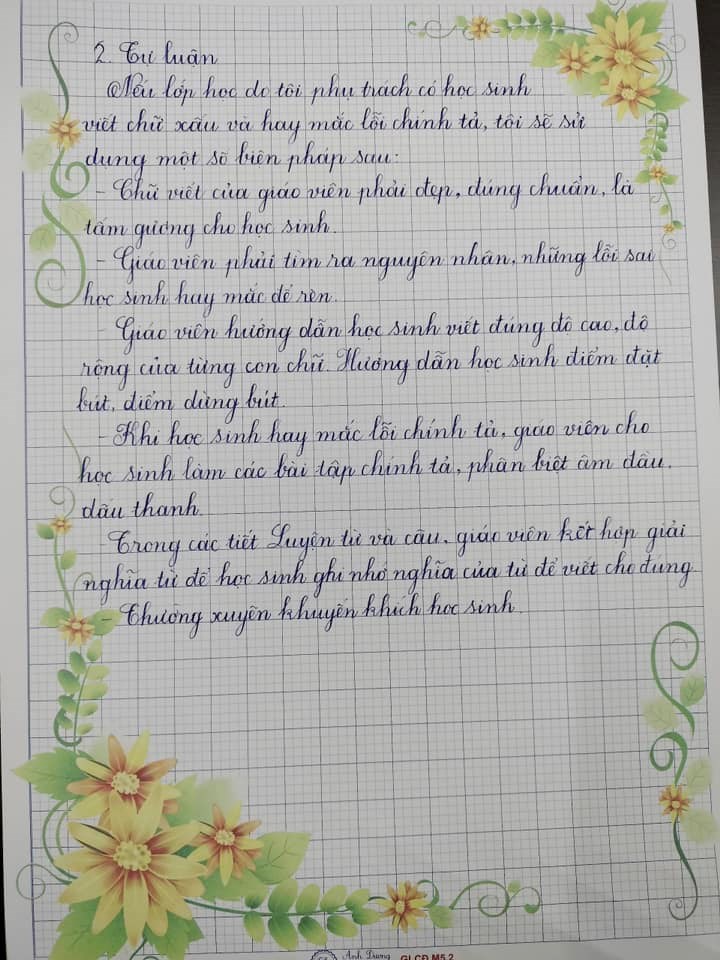 2. Tự luận
Nếu lớp học do tôi phụ trách có học sinh
viết chữ xấu và hay mắc lỗi chính tả, tôi sẽ sử
dụng một số biện pháp sau:
- Chữ viết của giáo viên phải đẹp, đúng chuẩn, là
tấm gương cho học sinh.
- Giáo viên phải tìm ra nguyên nhân, những lỗi sai
học sinh hay mắc để rèn.
- Giáo viên hướng dẫn học sinh viết đúng độ cao, độ
rộng của từng con chữ. Hướng dẫn học sinh điểm đặt
bút, điểm dừng bút.
- Khi học sinh hay mắc lỗi chính tả, giáo viên cho
học sinh làm các bài tập chính tả, phân biệt âm đầu,
dấu thanh.
- Trong các tiết Luyện từ và câu, giáo viên kết hợp giải
nghĩa từ để học sinh ghi nhớ nghĩa của từ để viết cho đúng.
- Thường xuyên khuyến khích học sinh.
Anh Dương GLCĐ M5.2